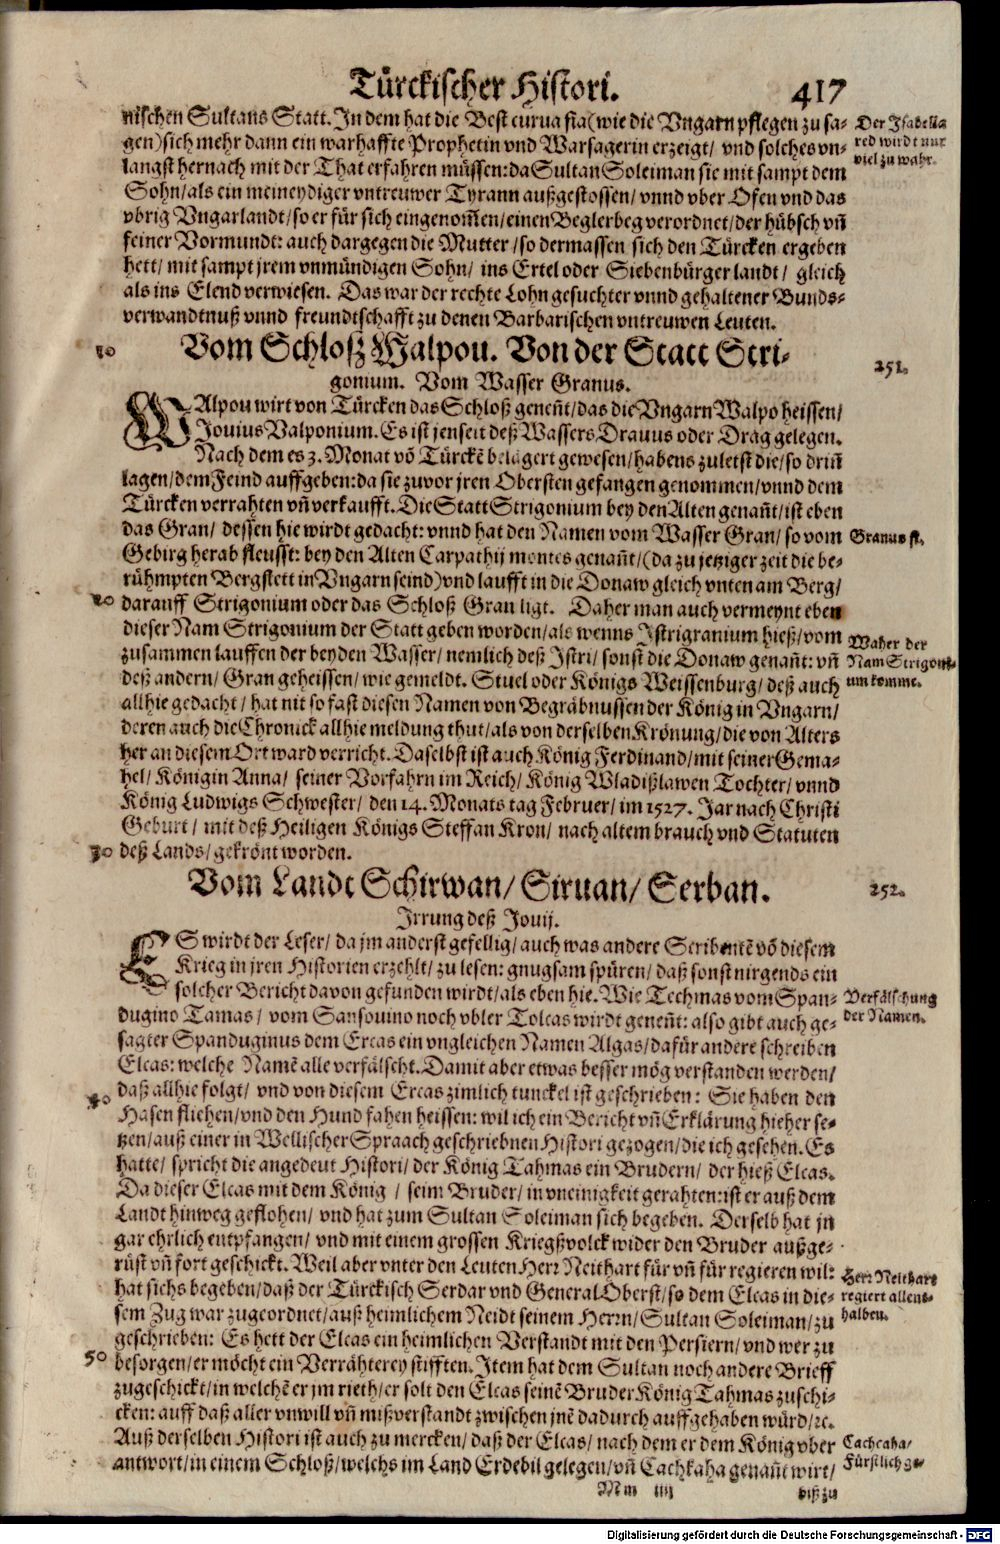 Türckischer Histori. 417
nischen Sultans Statt. In dem hat die Best curua fia (wie die Vngarn pflegen zu sa-
gen) sich mehr dann ein warhaffte Prophetin vnd Warsagerin erzeigt/ vnd solches vn-
langst hernach mit der That erfahren müssen: da Sultan Soleiman sie mit sampt dem
Sohn/ als ein meineydiger vntreuwer Tyrann außgestossen/ vnnd vber Ofen vnd das
vbrig Vngarlandt/ so er für sich eingenom̃en/ einen Beglerbeg verordnet/ der hübsch vñ
feiner Vormundt: auch dargegen die Mutter/ so dermassen sich den Türcken ergeben
hett/ mit sampt jrem vnmündigen Sohn/ ins Ertel oder Siebenbürger landt/ gleich
als ins Elend verwiesen. Das war der rechte Lohn gesuchter vnnd gehaltener Bunds-
verwandtnuß vnnd freundtschafft zu denen Barbarischen vntreuwen Leuten.
Der Isabella
red wirdt nur
viel zu wahr.
10
Vom Schloß Walpou. Von der Statt Stri-
gonium. Vom Wasser Granus.
251.
WAlpou wirt von Türcken das Schloß geneñt/ das die Vngarn Walpo heissen/
Jouius Valponium. Es ist jenseit deß Wassers Drauus oder Drag gelegen.
Nach dem es 3. Monat võ Türckẽ belagert gewesen/ habens zuletst die/ so driñ
lagen/ dem Feind auffgeben: da sie zuvor jren Obersten gefangen genommen/ vnnd dem
Türcken verrahten vñ verkaufft. Die Statt Strigonium bey den Alten genañt/ ist eben
das Gran/ dessen hie wirdt gedacht: vnnd hat den Namen vom Wasser Gran/ so vom
Gebirg herab fleusst: bey den Alten Carpathij montes genañt/ (da zu jetziger zeit die be-
rühmpten Bergstett in Vngarn seind) vnd laufft in die Donaw gleich vnten am Berg/
darauff Strigonium oder das Schloß Gran ligt. Daher man auch vermeynt eben
dieser Nam Strigonium der Statt geben worden/ als wenns Istrigranium hieß/ vom
zusammen lauffen der beyden Wasser/ nemlich deß Istri/ sonst die Donaw genañt: vñ
deß andern/ Gran geheissen/ wie gemeldt. Stuel oder Königs Weissenburg/ deß auch
allhie gedacht/ hat nit so fast diesen Namen von Begräbnussen der König in Vngarn/
deren auch die Chronick allhie meldung thut/ als von derselben Krönung/ die von Alters
her an diesem Ort ward verricht. Daselbst ist auch König Ferdinand/ mit seiner Gema-
hel/ Königin Anna/ seiner Vorfahrn im Reich/ König Wladißlawen Tochter/ vnnd
König Ludwigs Schwester/ den 14. Monats tag Februer/ im 1527. Jar nach Christi
Geburt/ mit deß Heiligen Königs Steffan Kron/ nach altem brauch vnd Statuten
deß Lands/ gekrönt worden.
Granus fl.
20
Waher der
Nam Strigoni-
um komme.
30
Vom Landt Schirwan/ Siruan/ Serban.
Irrung deß Jouij.
252.
ES wirdt der Leser/ da jm anderst gefellig/ auch was andere Scribentẽ võ diesem
Krieg in jren Historien erzehlt/ zu lesen: gnugsam spüren/ daß sonst nirgends ein
solcher Bericht davon gefunden wirdt/ als eben hie. Wie Techmas vom Span-
dugino Tamas/ vom Sansouino noch vbler Tolcas wirdt geneñt: also gibt auch ge-
sagter Spanduginus dem Ercas ein vngleichen Namen Algas/ dafür andere schreiben
Elcas: welche Namẽ alle verfälscht. Damit aber etwas besser mög verstanden werden/
daß allhie folgt/ vnd von diesem Ercas zimlich tunckel ist geschrieben: Sie haben den
Hasen fliehen/ vnd den Hund fahen heissen: wil ich ein Bericht vñ Erklärung hieher se-
tzen/ auß einer in Wellischer Spraach geschriebnen Histori gezogen/ die ich gesehen. Es
hatte/ spricht die angedeut Histori/ der König Tahmas ein Brudern/ der hieß Elcas.
Da dieser Elcas mit dem König/ seim Bruder/ in vneinigkeit gerahten: ist er auß dem
Landt hinweg geflohen/ vnd hat zum Sultan Soleiman sich begeben. Derselb hat jn
gar ehrlich entpfangen/ vnd mit einem grossen Kriegßvolck wider den Bruder außge-
rüst vñ fort geschickt. Weil aber vnter den Leuten Herr Neithart für vñ für regieren wil:
hat sichs begeben/ daß der Türckisch Serdar vnd General Oberst/ so dem Elcas in die-
sem Zug war zugeordnet/ auß heimlichem Neidt seinem Herrn/ Sultan Soleiman/ zu
geschrieben: Es hett der Elcas ein heimlichen Verstandt mit den Persiern/ vnd wer zu
besorgen/ er möcht ein Verrähterey stifften. Item hat dem Sultan noch andere Brieff
zugeschickt/ in welchẽ er jm rieth/ er solt den Elcas seinẽ Bruder König Tahmas zuschi-
cken: auff daß aller vnwill vñ mißverstandt zwischen jnẽ dadurch auffgehaben würd/ ꝛc.
Auß derselben Histori ist auch zu mercken/ daß der Elcas/ nach dem er dem König vber
antwort/ in einem Schloß/ welchs im Land Erdebil gelegen/ vñ Cachkaha genañt wirt/
Verfälschung
der Namen.
40
Herr Neithart
regiert allent-
halben.
50
Cachcaha/
Fürstlich ge-
Mm iiij
biß zu
Digitalisierung gefördert durch die Deutsche Forschungsgemeinschaft - DFG